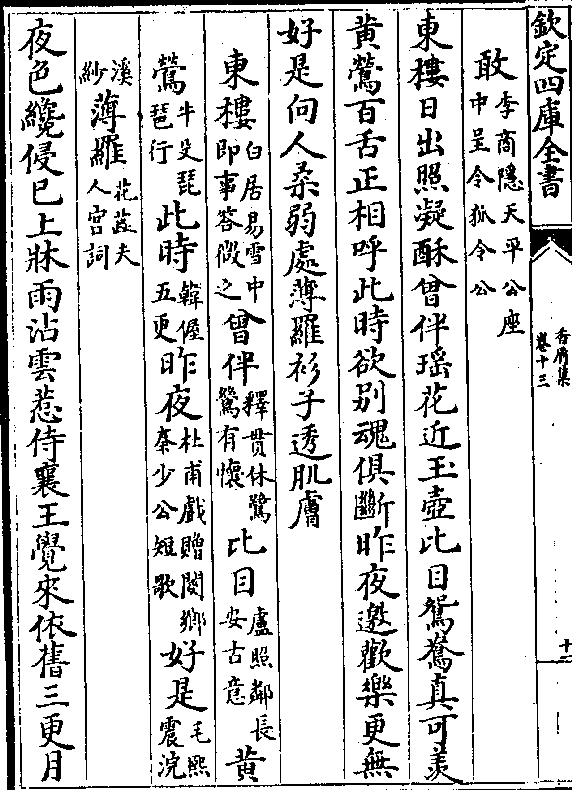 欽定四庫全書
香屑集
卷十三
十二
敢李商隱天平公座
中呈令狐令公
東樓日出照凝酥曾伴瑶花近玉壺比目鴛鴦真可羡
黄鶯百舌正相呼此時欲别魂俱斷昨夜邀歡樂更無
好是向人柔弱處薄羅衫子透肌膚
東樓白居易雪中即事答微之曾伴釋貫休鷺鷥有懷比目盧照鄰長安古意黄
鶯牛殳琵琶行此時韓偓五更昨夜杜甫戲贈閿鄉秦少公短歌好是毛熙震浣
溪紗薄羅花蕊夫人宫詞
夜色纔侵已上牀雨沾雲惹侍襄王覺來依舊三更月